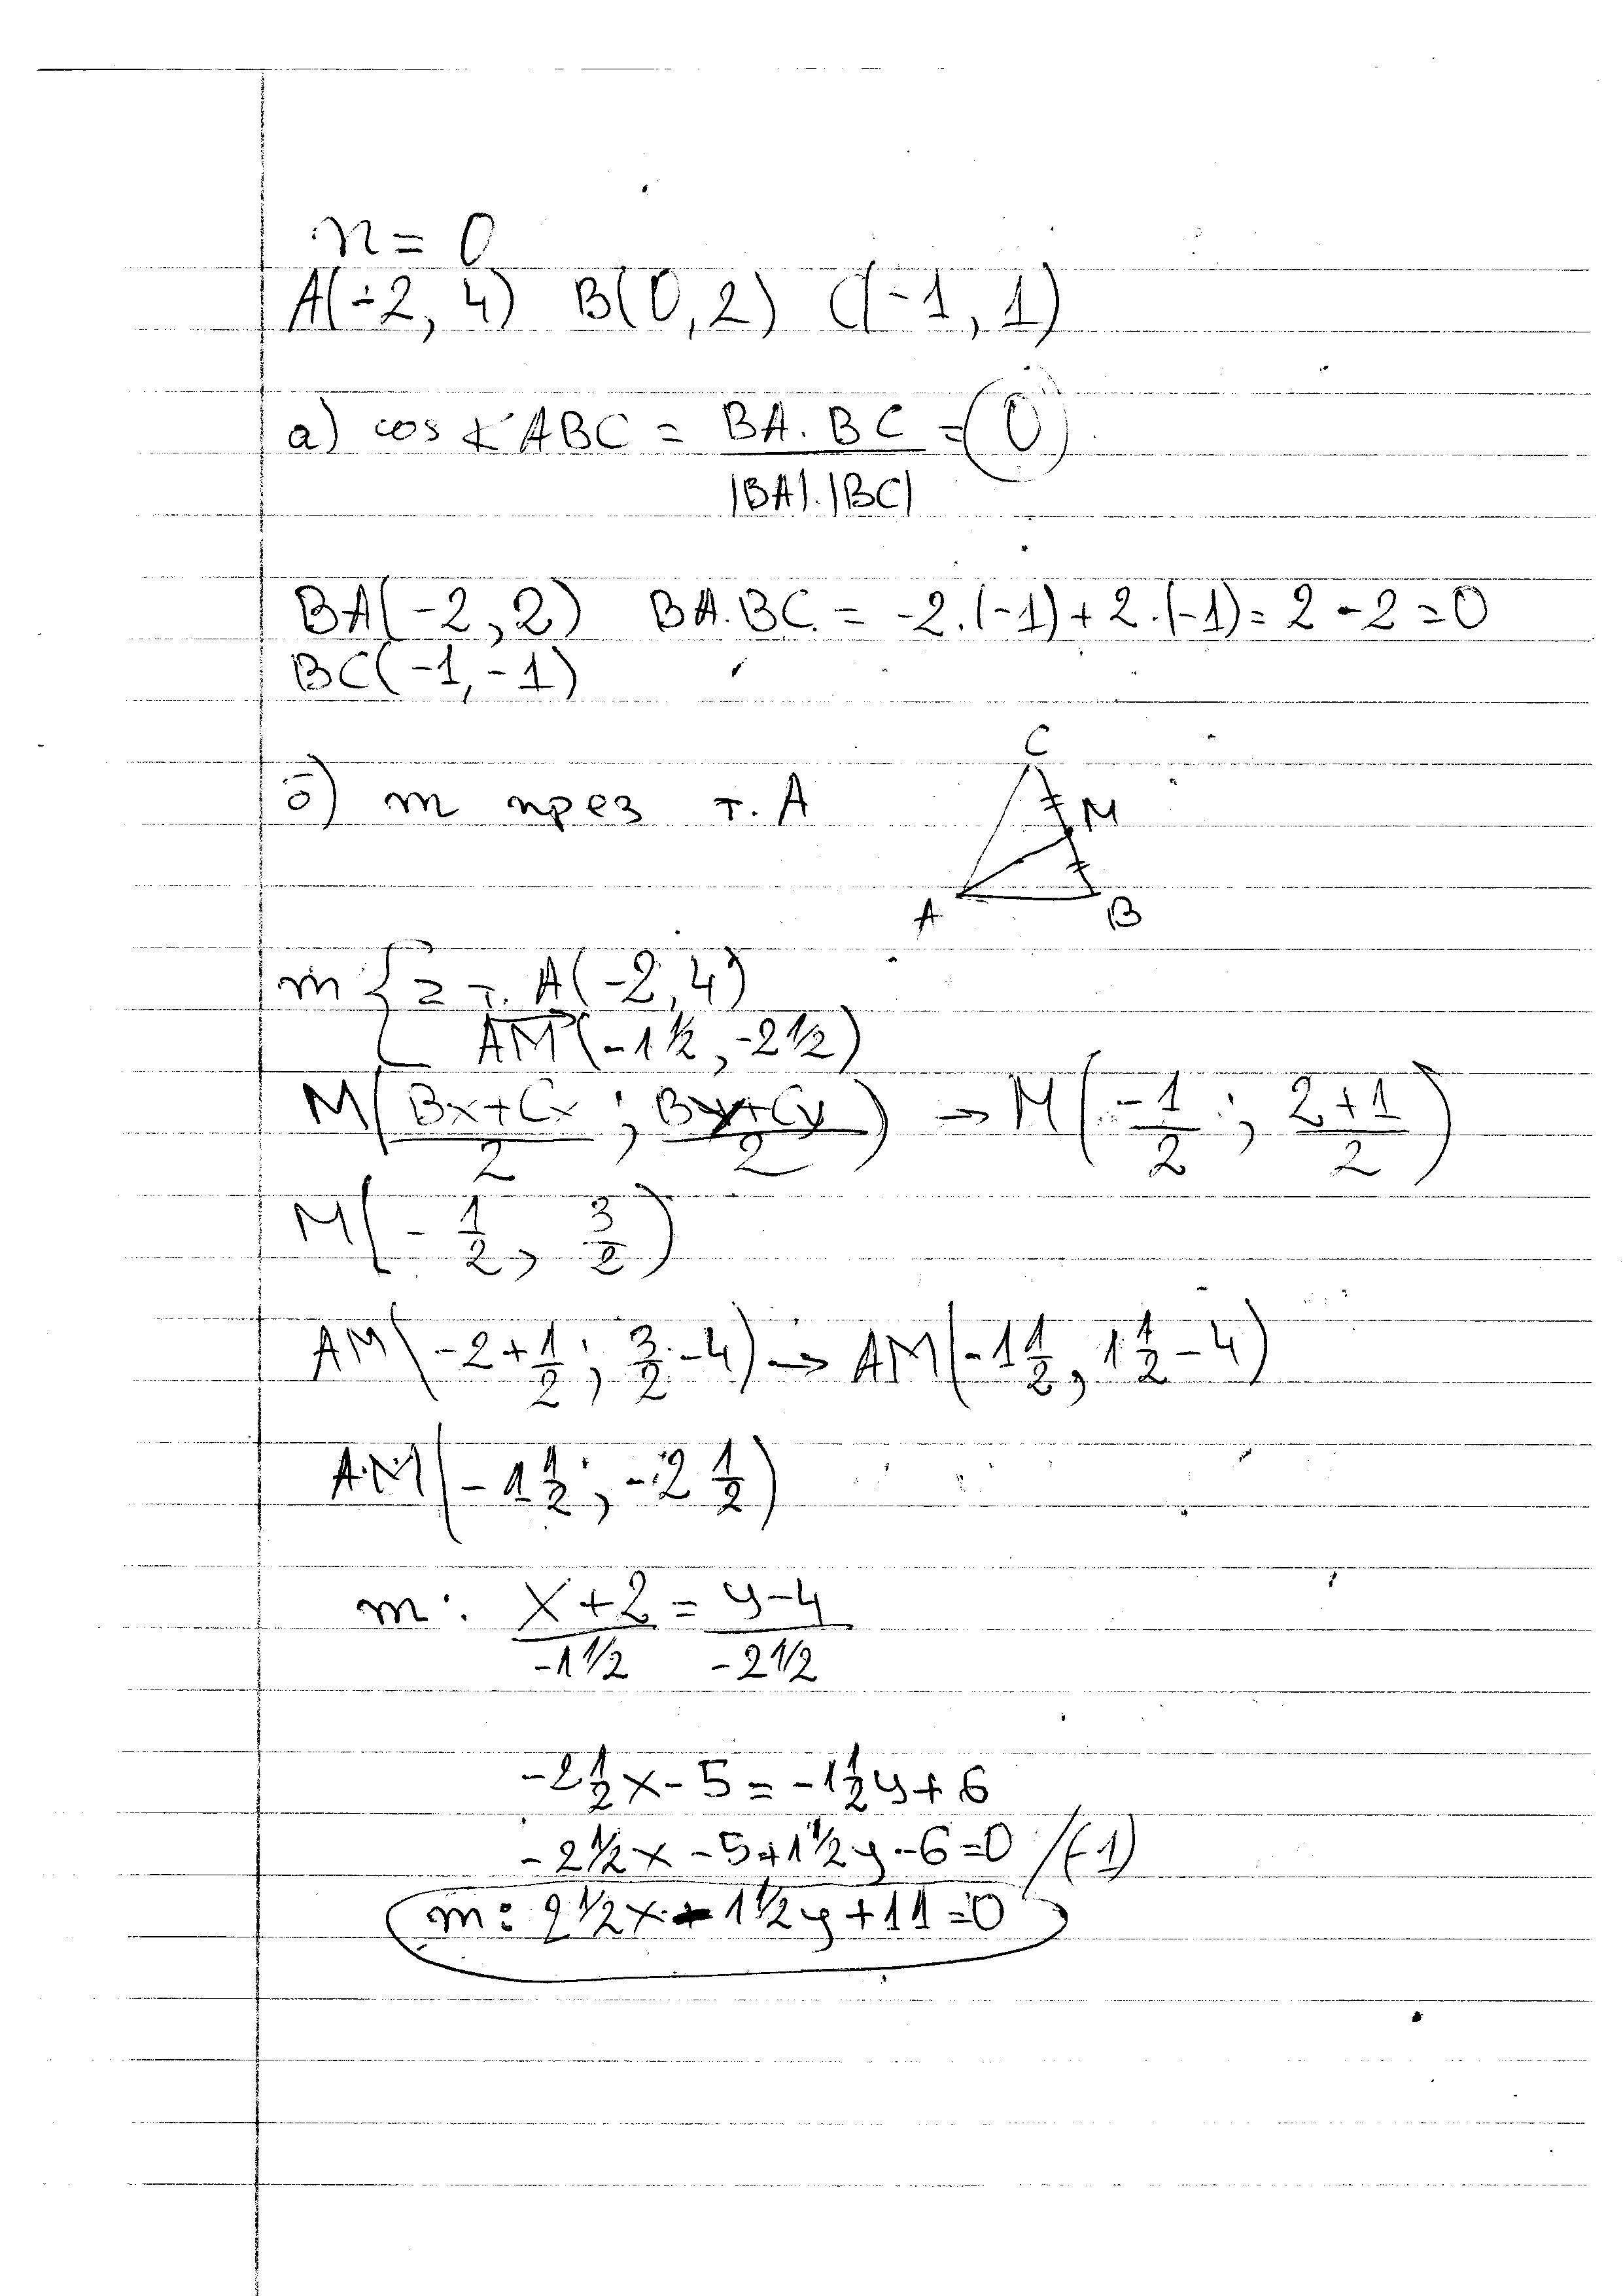 n = 0
A(-2, 4) B(0, 2) C(-1, 1)
а) cos ∢ ABC = BA . BC / |BA| . |BC| = 0
BA(-2, 2) BA.BC = -2.(-1) + 2.(-1) = 2 - 2 = 0
BC(-1, -1)
б) m през т. A
C
M
A B
m { Z т. A(-2, 4)
AM(-1 1/2, -2 1/2)
M(Bx+Cx / 2 ; By+Cy / 2) → M(-1/2 ; 2+1 / 2)
M(-1/2, 3/2)
AM(-2+1/2 ; 3/2-4) → AM(-1 1/2, 1 1/2 - 4)
AM(-1 1/2 ; -2 1/2)
m: x+2 / -1 1/2 = y-4 / -2 1/2
-2 1/2 x - 5 = -1 1/2 y + 6
-2 1/2 x - 5 + 1 1/2 y - 6 = 0 /(-1)
m: 2 1/2 x - 1 1/2 y + 11 = 0